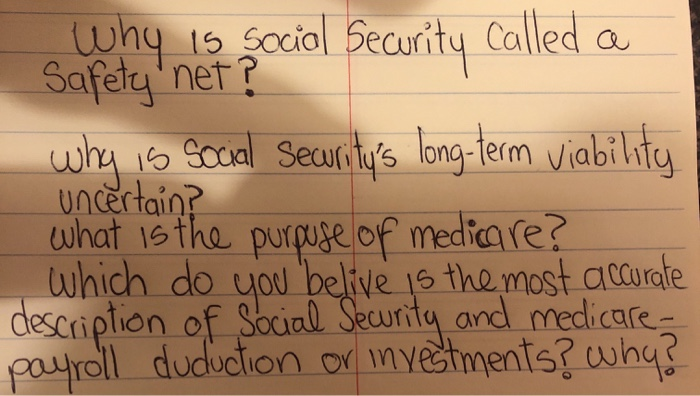 Why is Social Security Called a
Safety net?
Why is Social Security's long-term viability
uncertain?
What is the purpuse of medicare?
Which do you belive is the most accurate
description of Social Security and medicare-
payroll duduction or investments? Why?